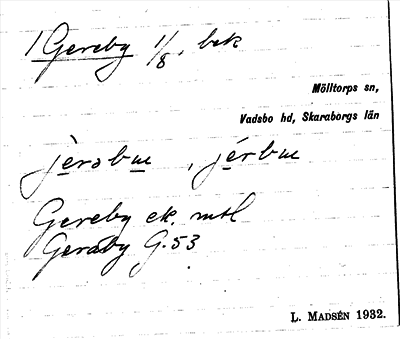 1 Gereby 1/8, bek
Mölltorps sn,
Vadsbo hd, Skaraborgs län
jèrəbɯ, jérbɯ
Gereby ek. mtl
Geraby G. 53
L. MADSÉN 1932.